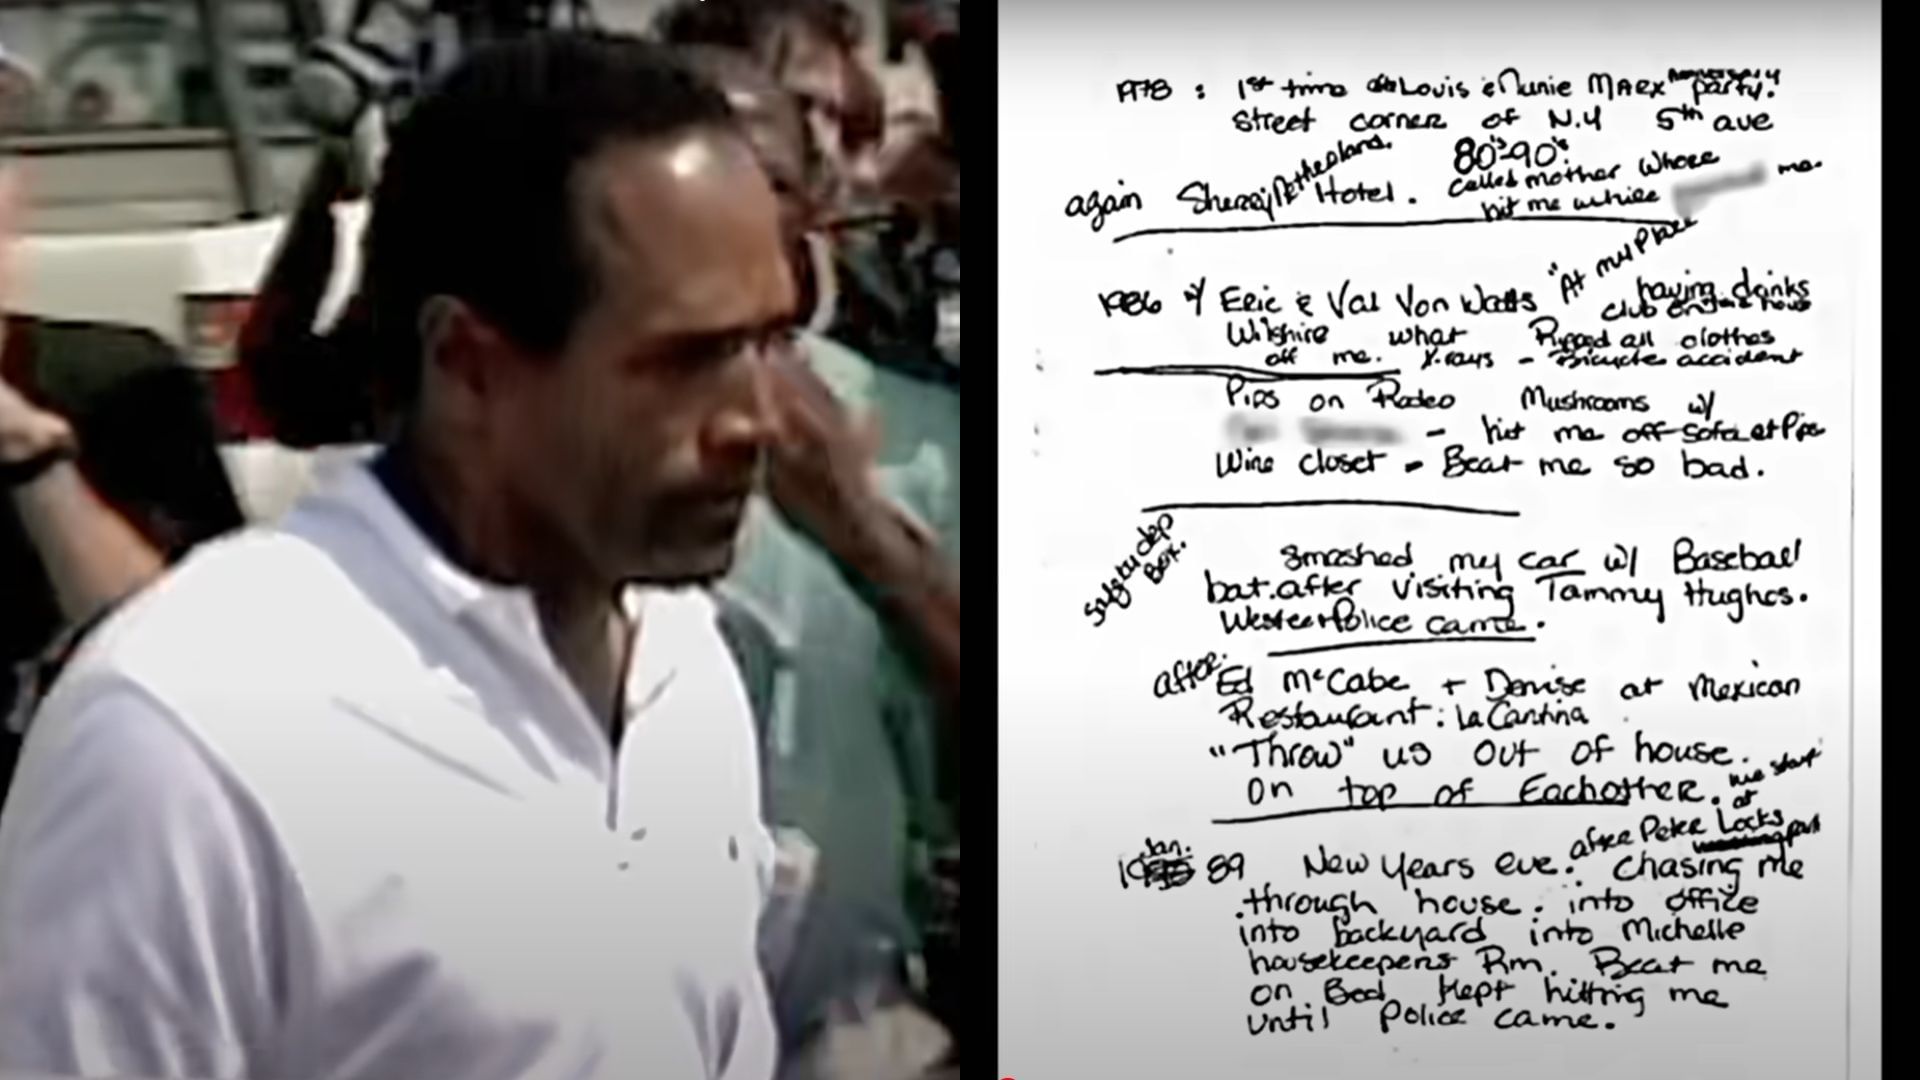 1978 : 1st time @ Louis & Nunie Marx Anniversary party.
Street corner of N.Y 5th ave
again Sherry Netherland Hotel. 80's-90's
Called mother whore
hit me while me.
1986 w/ Eric & Val Von Watts "At my Place having drinks
club
Wilshire what Ripped all clothes
off me. X-rays - Bicycle accident
Pips on Rodeo Mushrooms w/
- hit me off sofa at Pips
Wine closet - Beat me so bad.
Safety dep Box.
Smashed my car w/ Baseball
bat. after visiting Tammy Hughes.
Westec + Police came.
after. Ed McCabe + Denise at Mexican
Restaurant: La Cantina
"Throw" us out of house.
On top of Eachother.
Jan. 89 New Years eve. after Peter Locks party
Chasing me
through house. into office
into backyard into Michelle
housekeepers Rm. Beat me
on Bed kept hitting me
until Police came.